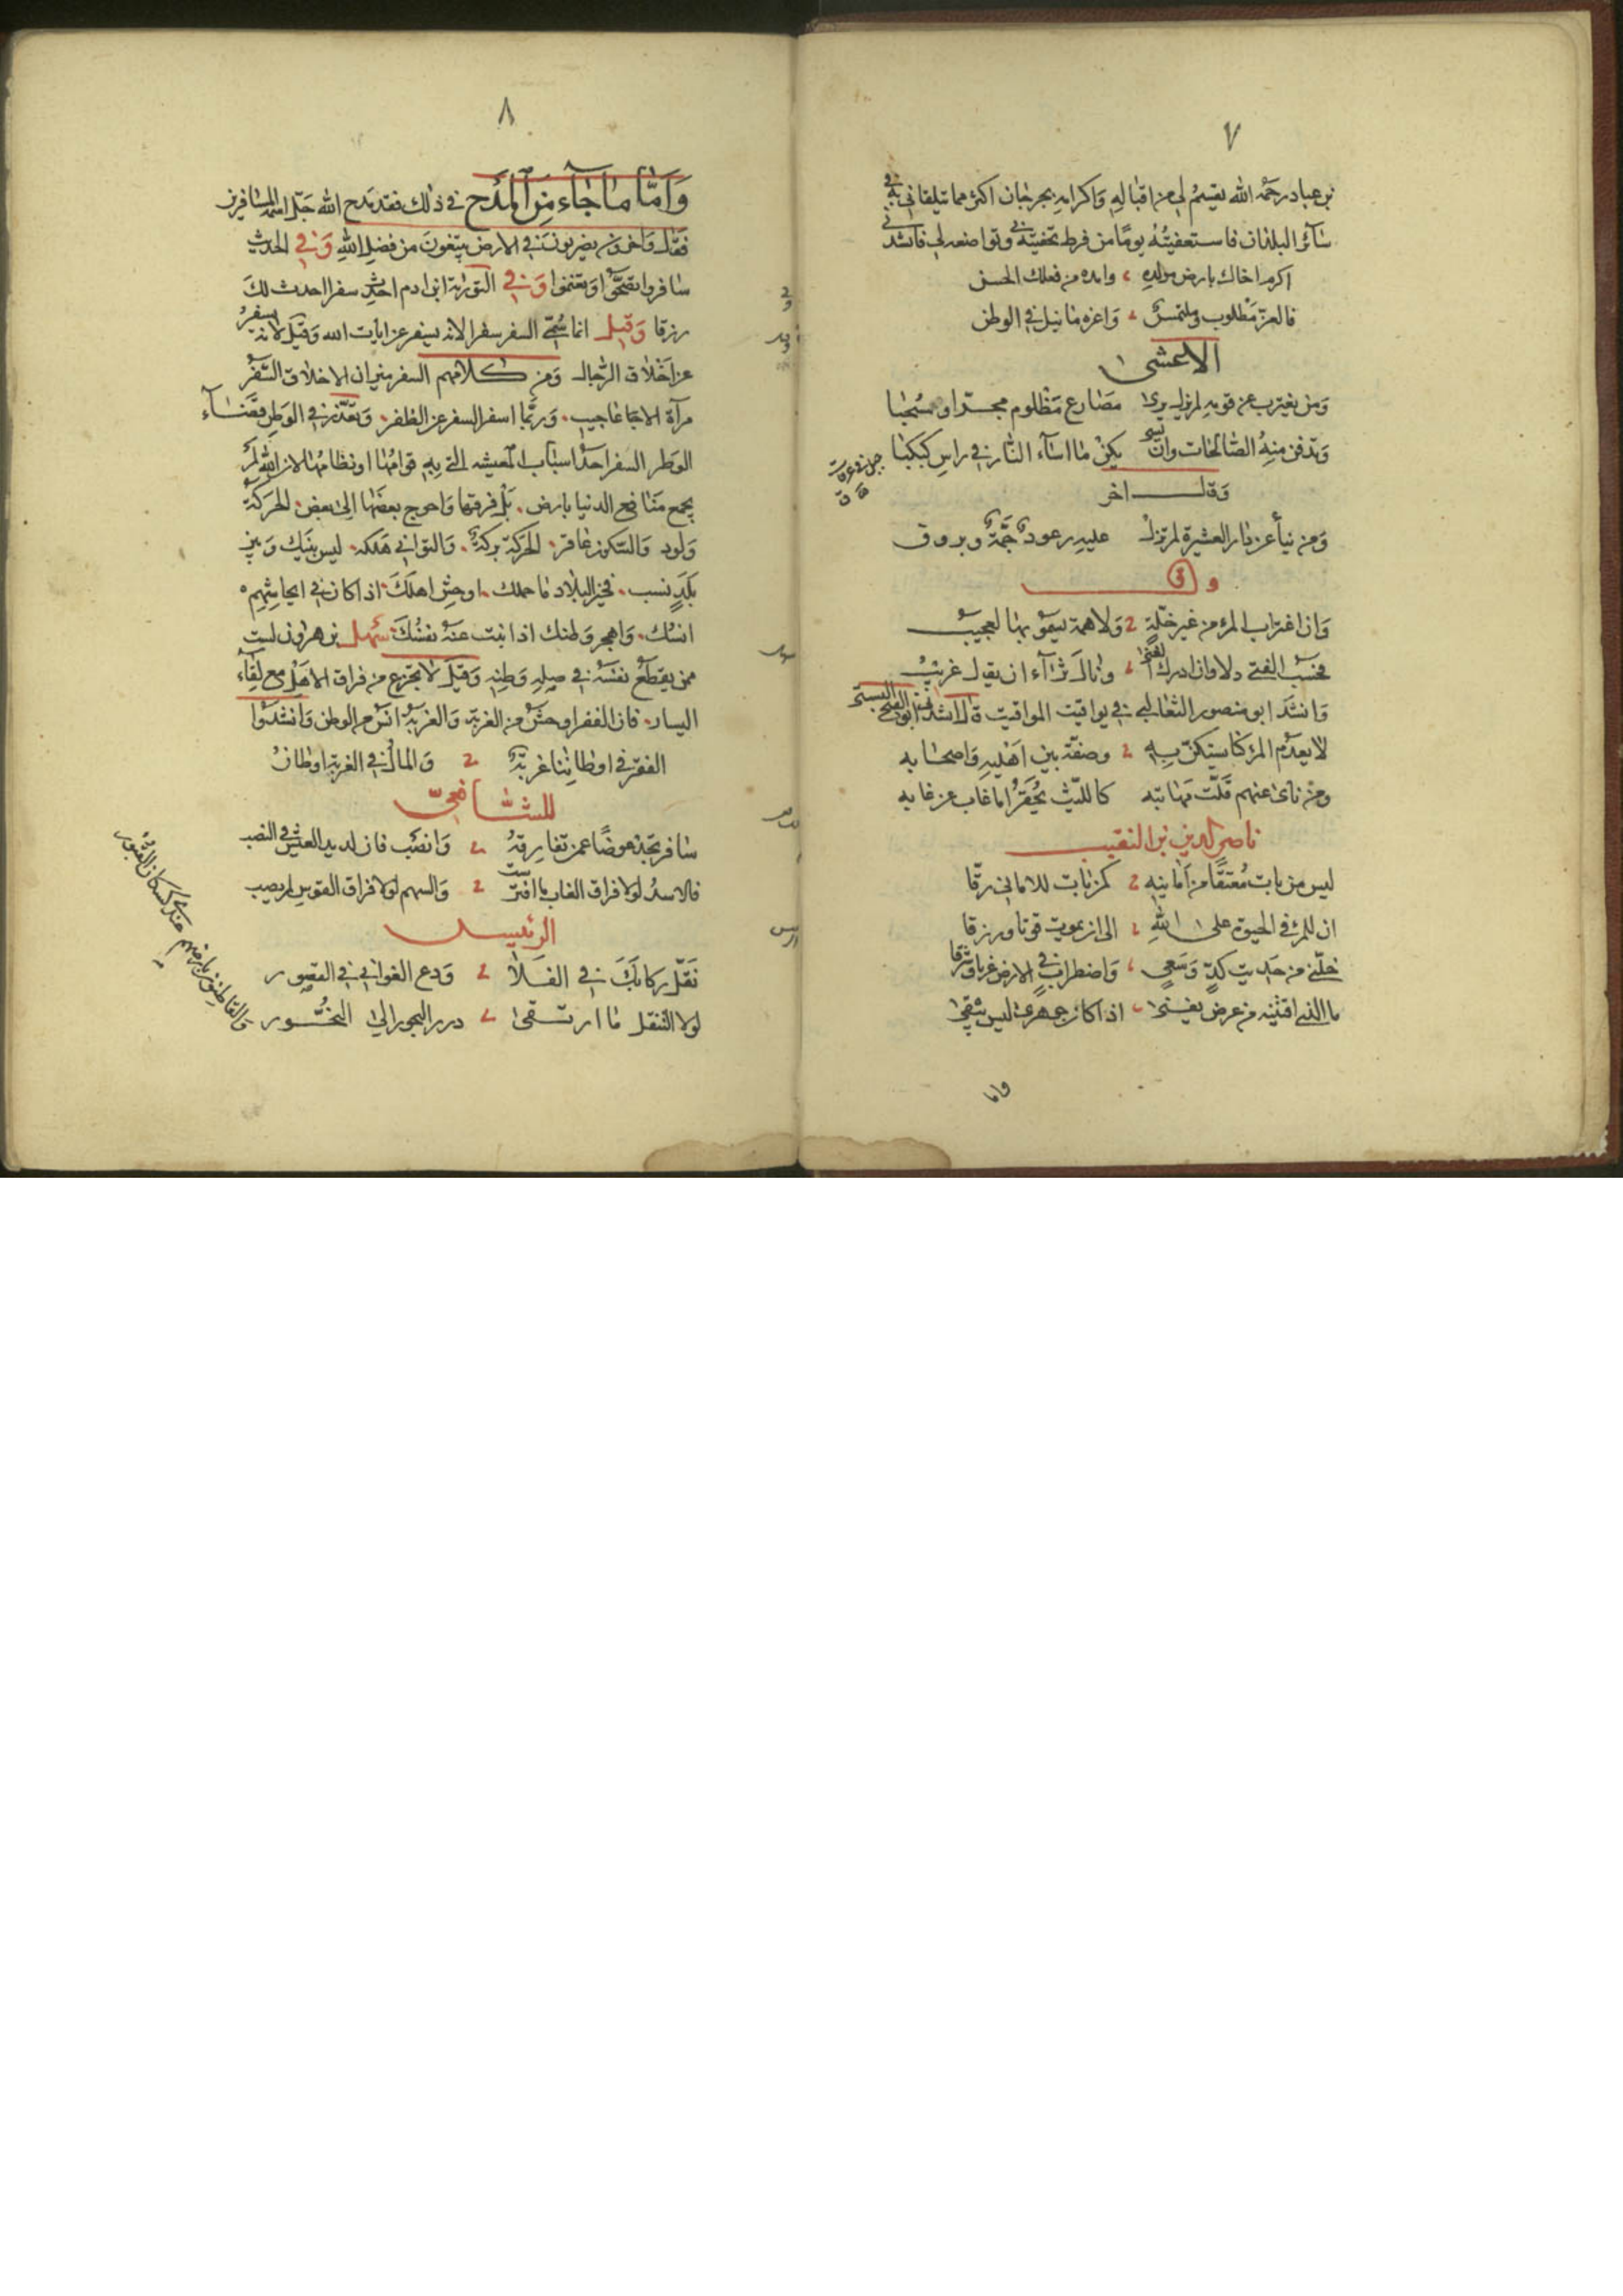 ٧
بن عباد رحمه الله يقسم لي من اقباله واكرامه بجرجان اكثر مما يتلقاني به في
سائر البلدان فاستعفيته يومًا من فرط تحفيه بي وتواضعه لي فانشدني
اكرم اخاك بارض مولده وامده من فعلك الحسن
فالعز مطلوب وملتمس واعزه ما نيل في الوطن
الاعشى
ومن يغترب عن قومه لم يزل يرى مصارع مظلوم مجرّا ومسحبا
وتدفن منه الصالحات وان يسئ يكن ما اساء النار في راس كبكبا
جبل في عرفات
وقال اخر
ومن ينأ عن دار العشيرة لم يزل عليه رعود جمة وبروق
وان اغتراب المرء من غير خلة ولا همة يسمو بها لعجيب
فحسب الفتى ذلا وان ادرك الغنى ونال ثراء ان يقال غريب
وانشد ابو منصور الثعالبي في يواقيت المواقيت قال انشدني ابو الفتح البستي
لا يعدم المرء كنا يستكن به وصفة بين اهليه واصحابه
ومن ناى عنهم قلّت مهابته كالليث يحقر لما غاب عن غابه
ناصر الدين بن النقيب
ليس من بات معتقًا من امانيه كمن بات للاماني رقّا
ان للمرء في الحيوة على الله الى ان يموت قوتا ورزقا
خلّني من حديث كدّ وسعي واضطراب في الارض غربا وشرقا
ما الذي اقتنيه من عرض يفنى اذا كان جوهرى ليس يبقى
واما
٨
وَامّا ما جاء من المدح في ذلك فقد مدح الله جل اسمه المسافرين
فقال وآخرون يضربون في الارض يبتغون من فضل الله وفي الحديث
سافروا تصحّوا وتغنموا وفي التوراة ابن ادم احدث سفرا احدث لك
رزقا وقيل انما سُمّي السفر سفرا لانه يسفر عن ايات الله وقيل لانه يسفر
عن اخلاق الرجال ومن كلامهم السفر ميزان الاخلاق السفر
مرآة الاعاجيب وربّما اسفر السفر عن الظفر وتعذّر في الوطن قضاء
الوطر السفر احد اسباب المعيشه التي به قوامها ونظامها لان الله لم
يجمع منافع الدنيا بارض بل فرقها واحوج بعضها الى بعض الحركة
ولود والسكون عاقر الحركة بركة والتواني هلكه ليس بينك وبين
بلد نسب فخير البلاد ما حملك اوحش اهلك اذا كان في ايحاشهم
انسك واهجر وطنك اذا نبت عنه نفسك سهل بن هرون لست
ممن يقطع نفسه في صلة وطنه وقيل لا تجزع من فراق الاهل مع لقاء
اليسار فان الفقر اوحش من الغربة والغربة انس من الوطن وانشدوا
الفقر في اوطاننا غربة والمال في الغربة اوطان
للشافعيّ
سافر تجد عوضًا عمن تفارقه وانصب فان لذيذ العيش في النصب
فالاسد لولا فراق الغاب ما افترست والسهم لولا فراق القوس لم يصب
الرئيس
نقّل ركابك في الفلا ودع الغواني في القصور
لولا التنقل ما ارتقى درر البحور الى النحور
والقاطنون بارضهم كسكان القبور